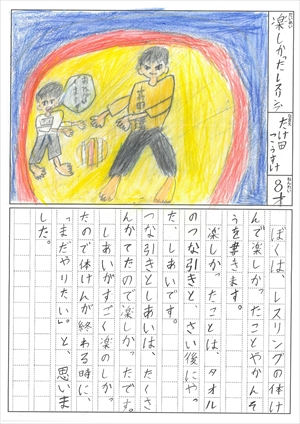 だいめい
楽しかったレスリング
なまえ
たけ田
こうすけ
ねんれい
8才
ぼくは、レスリングの体け
んで楽しかったことやかんそ
うを書きます。
楽しかったことは、タオル
のつな引きと、さい後にやっ
た、しあいです。
つな引きとしあいは、たくさ
んかてたので楽しかったです。
しあいがすごく楽のしかっ
たので体けんが終わる時に、
「まだやりたい」と、思いま
した。